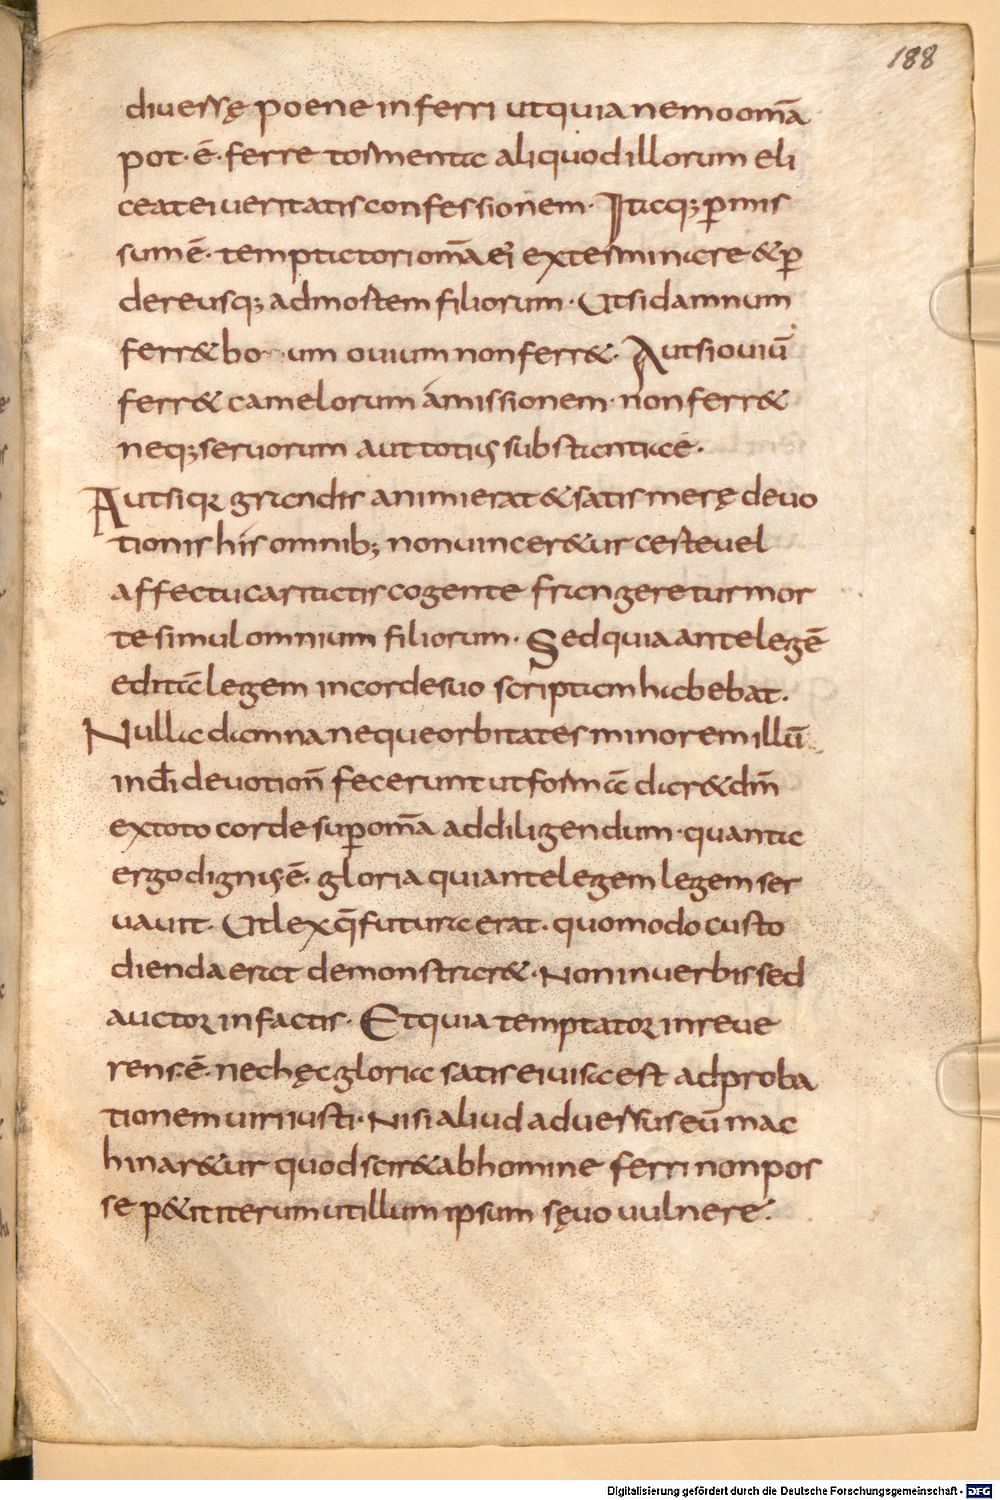 188
diuersę poene inferri utquia nemo om̄a
pot· ē· ferre tormenta aliquod illorum eli
ceat ei ueritatis confessionem· Itaq; ꝑmis
sum ē· temptatori om̄a ei exterminare & ꝑ
dere usq; ad mortem filiorum· Ut si damnum
ferr& bo um ouium non ferr&· Aut si ouiū
ferr& camelorum amissionem· non ferr&
neq; seruorum aut totius substantiae·
Aut si quia grandis animi erat & satis merę deuo
tionis his omnib; non uincer&ur certe uel
affectu caritatis cogente frangeretur mor
te simul omnium filiorum· Sed quia ante legē
editā legem in corde suo scriptam habebat·
Nulla damna neque orbitates minorem illū
in dī deuotion̄ fecerunt ut formā dar& dm̄
ex toto corde suꝑ om̄a ad diligendum· quanta
ergo dignus ē· gloria qui ante legem legem ser
uauit· Ut lex q̄ futura erat· quomodo custo
dienda erat demonstrar&· Non in uerbis sed
auctor in factis· Et quia temptator inreue
rens· ē· nec hęc gloria satis ei uisa est ad proba
tionem uiri iusti· Nisi aliud aduersus eū mac
hinar&ur quod scir& ab homine ferri non pos
se p&it iterum ut illum ipsum sęuo uulnere·
Digitalisierung gefördert durch die Deutsche Forschungsgemeinschaft - DFG